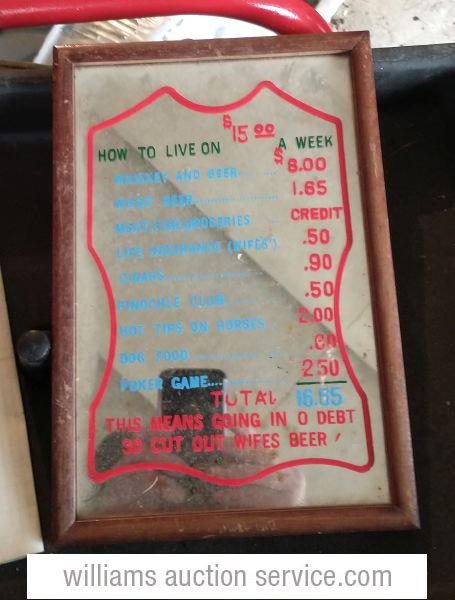 HOW TO LIVE ON $15.00 A WEEK
WHISKEY AND BEER........ $8.00
WIFES BEER................ 1.65
MEAT, FISH, GROCERIES CREDIT
LIFE INSURANCE (WIFES') .50
CIGARS................ .90
PINOCHLE CLUB.......... .50
HOT TIPS ON HORSES.... 2.00
DOG FOOD............ .60
POKER GAME............ 2.50
TUTAL 16.65
THIS MEANS GOING IN O DEBT
SO CUT OUT WIFES BEER!
williams auction service.com